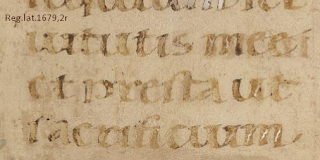 Reg.lat.1679,2r
uirtutis mee
et presta ut
sacrificium.